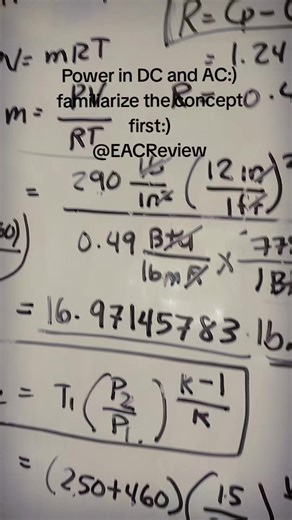 R = Cp -
PV = mRT
= 1.24
Power in DC and AC:)
familiarize the concept
first:)
@EACReview
m = PV / RT
= 290 lb/in² (12 in / 1 ft)²
0.49 Btu / lbm °R ×
= 16.97145783 lb
= T₁ (P₂/P₁)^(k-1)/k
= (250+460) (15